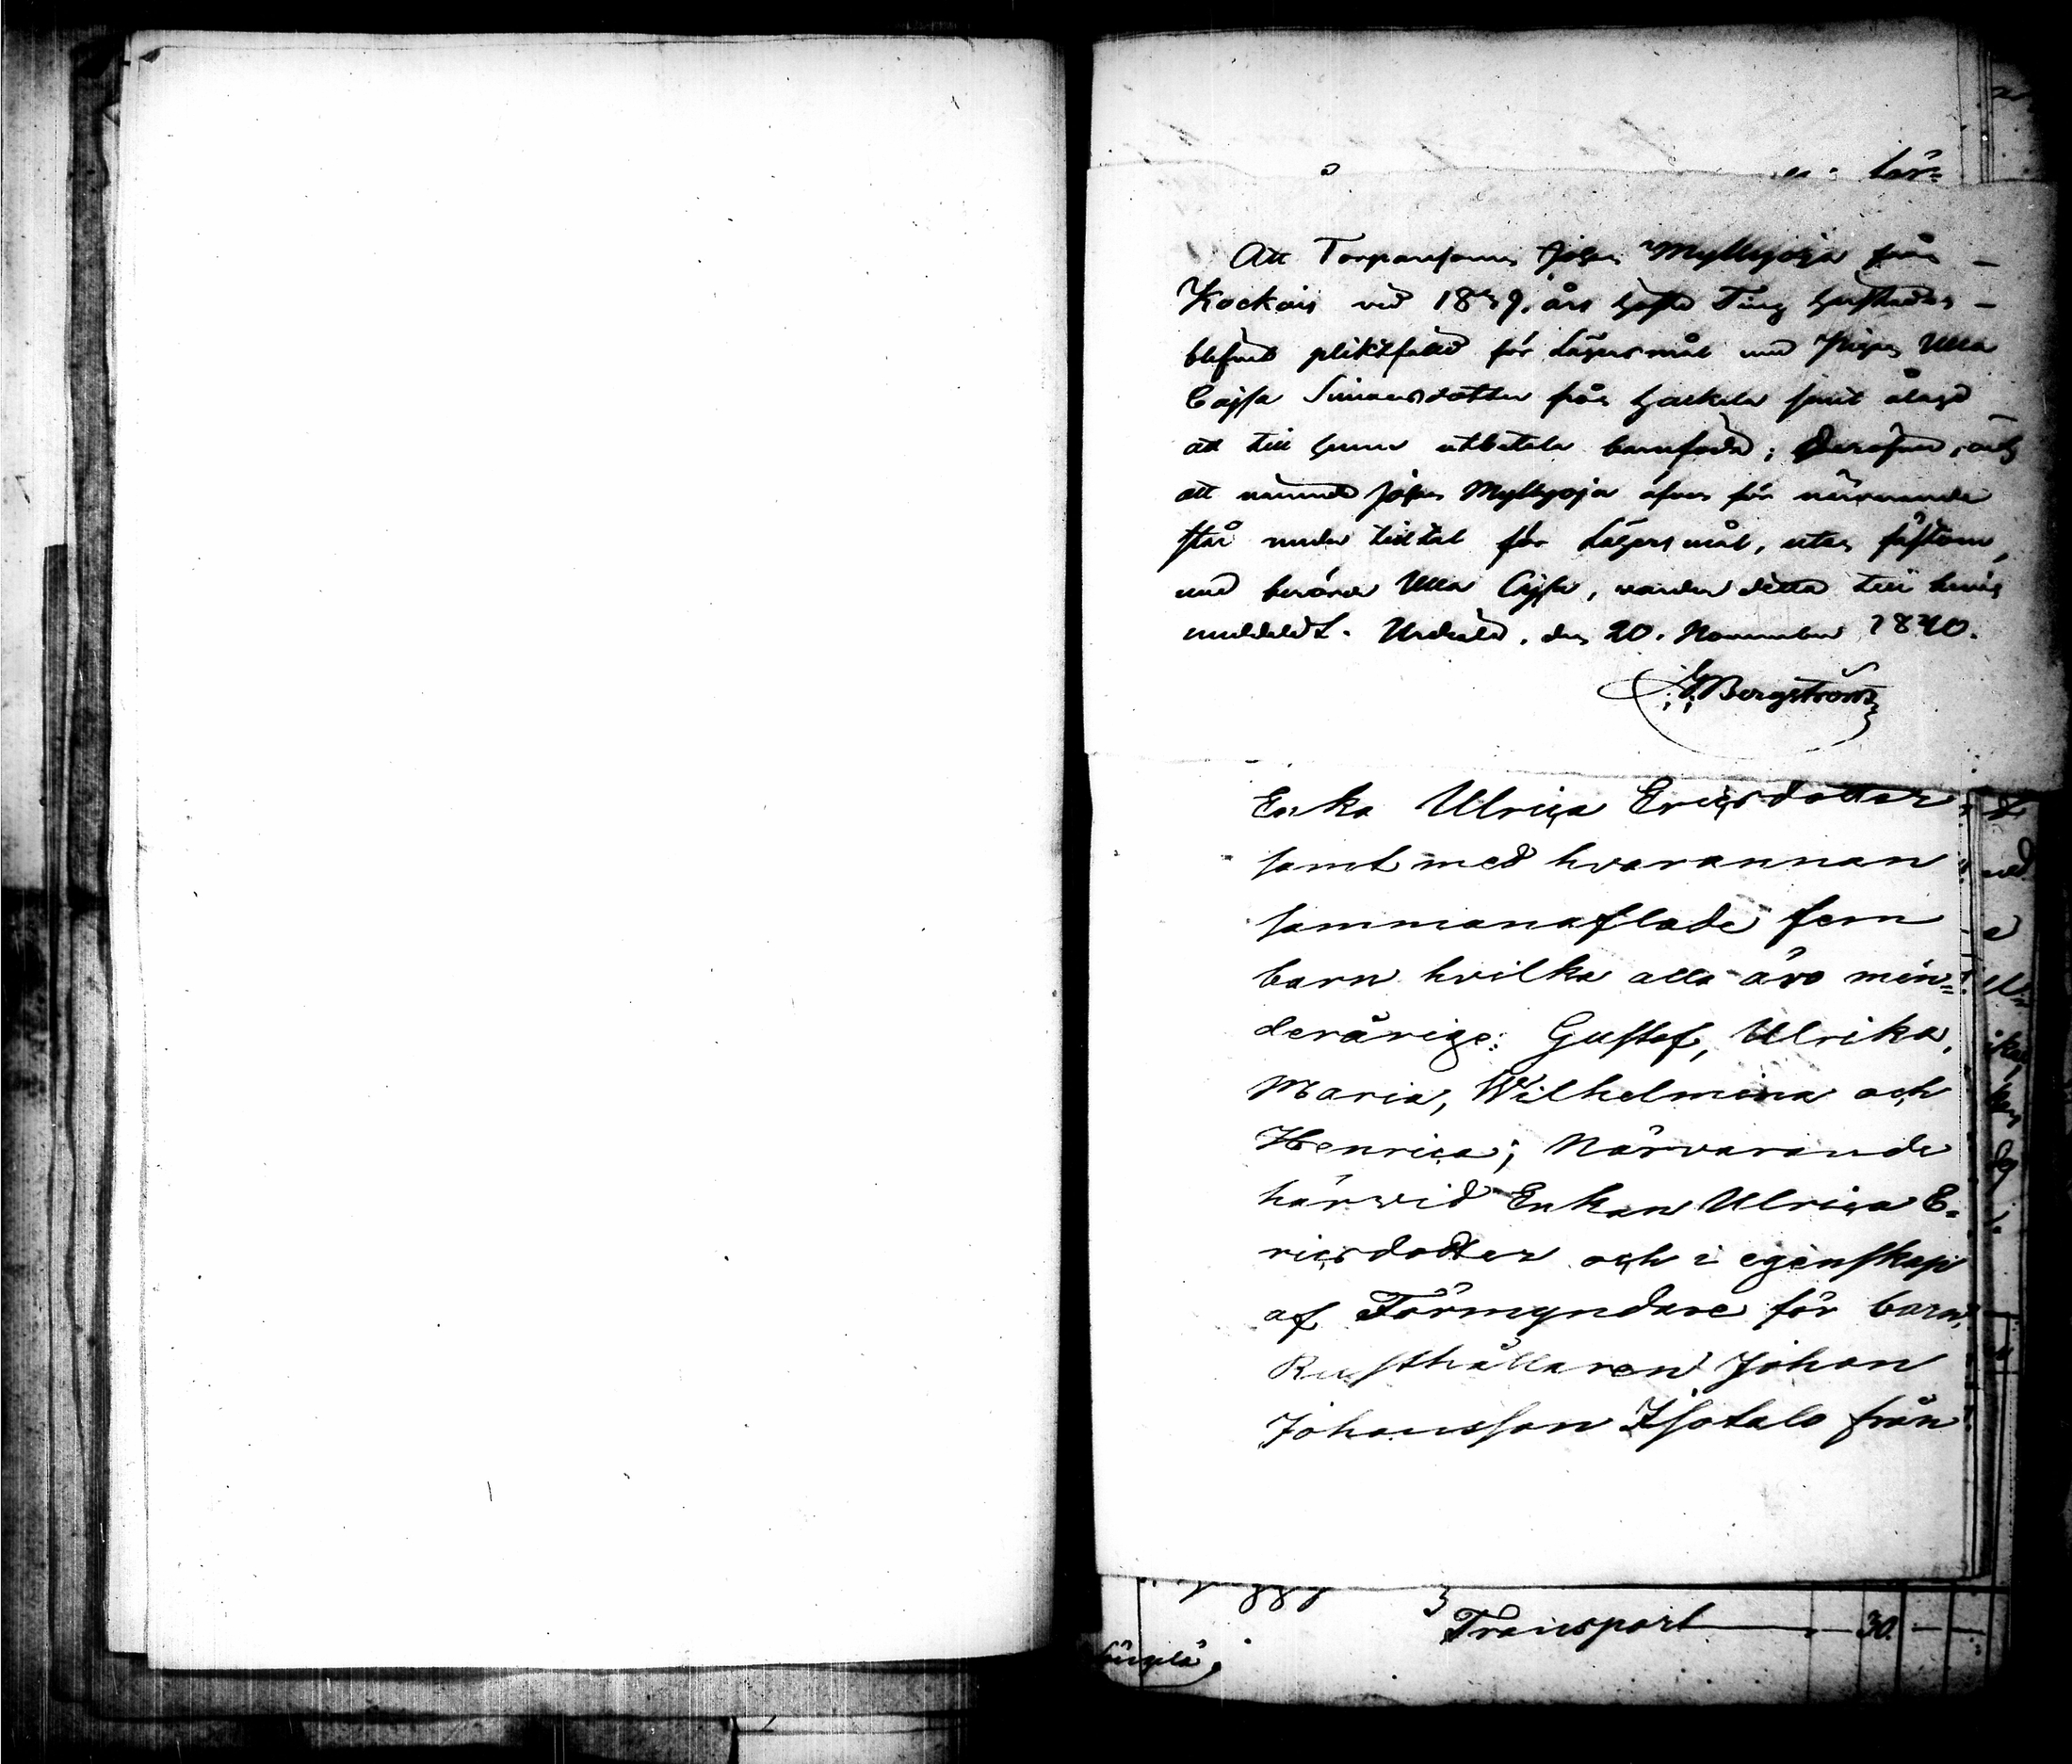 lär=
Att Torparesonen Johan Myllyoja från –
Kockois vid 1839 års Höste Ting härstädes –
blifvit pliktfälld för Lägersmål med Pigan Ulla
Cajsa Simonsdotter från samt ålagd
att till henne utbetala barnföda; derofvan, och
att nämnde Johan Myllyoja äfven för närvarande
står under tilltal för Lägersmål, utan fästom,
med berörde Ulla Cajsa, varder detta till bevis
meddeldt. Urdiala, den 20. November 1840.
Bergström
Enka Ulrica Ericsdotter
samt med hvarannan
sammanaflade fem
barn hvilka alla äro min=
derårige: Gustaf, Ulrika,
Maria, Wilhelmina och
Henrica; Närvarande
härvid Enkan Ulrica E=
ricsdotter och i egenskap
af Förmyndare för barn,
Rusthållaren Johan
Johansson Isotalo från
Transport 30. –